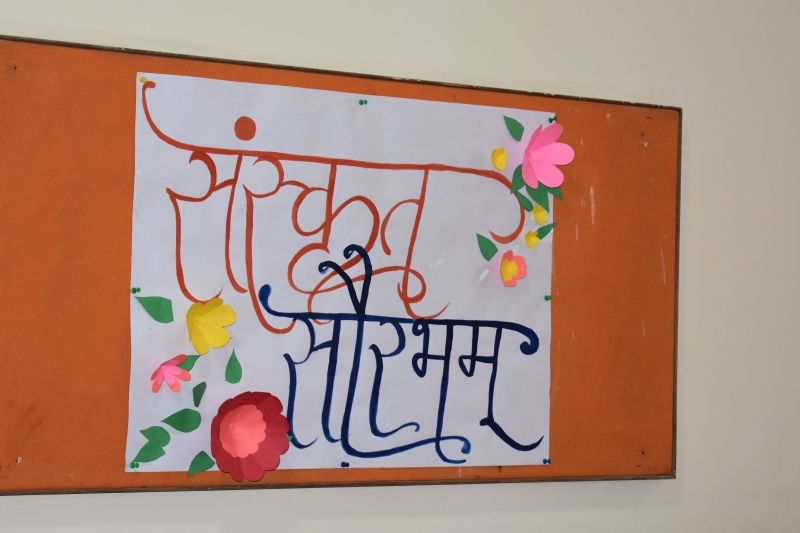 संस्कृत
सौरभम्